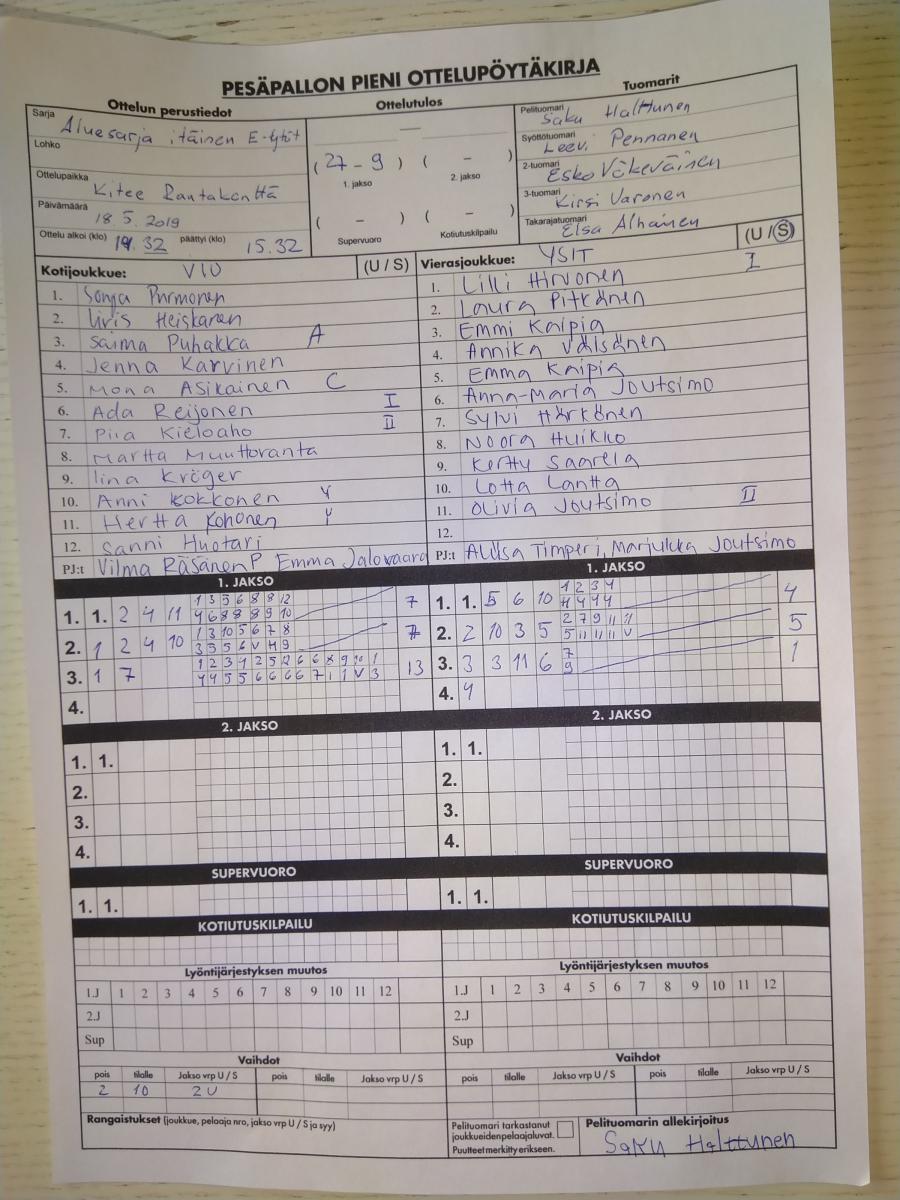 PESÄPALLON PIENI OTTELUPÖYTÄKIRJA
Ottelun perustiedot Ottelutulos Tuomarit
Sarja Aluesarja itäinen E-tytöt
Lohko
Ottelupaikka Kitee Rantakenttä
Päivämäärä 18.5.2019
Ottelu alkoi (klo) 14.32 päättyi (klo) 15.32
(27 - 9) ( - )
1. jakso 2. jakso
( - ) ( - )
Supervuoro Kotiutuskilpailu
Pelituomari Saku Halttunen
Syöttötuomari Leevi Pennanen
2-tuomari Esko Väkeväinen
3-tuomari Kirsi Varonen
Takarajatuomari Elsa Alhainen
Kotijoukkue: V10 (U / S)
1. Sonja Purmonen
2. Iiris Heiskanen
3. Saima Puhakka A
4. Jenna Karvinen
5. Mona Asikainen C
6. Ada Reijonen I
7. Piia Kieloaho II
8. Martta Muuttoranta
9. Iina Kröger
10. Anni Kokkonen Y
11. Hertta Kohonen Y
12. Sanni Huotari
PJ:t Vilma Räsänen P Emma Jalovaara
Vierasjoukkue: YSIT (U / S)
1. Lilli Hirvonen I
2. Laura Pitkänen
3. Emmi Kaipia
4. Annika Väisänen
5. Emma Kaipia
6. Anna-Maria Joutsimo
7. Sylvi Härkönen
8. Noora Huikko
9. Kerttu Saarela
10. Lotta Lantta
11. Olivia Joutsimo II
12.
PJ:t Timperi, Marjukka Joutsimo
1. JAKSO
1. 1. 2 4 11 1 3 5 6 8 8 12 7
4 6 8 8 8 9 10
2. 1 2 4 10 1 3 10 5 6 7 8 7
3 5 5 6 V 4 9
3. 1 7 13
4.
1. JAKSO
1. 1. 5 6 10 1 2 3 4 4
4 4 4 4
2. 2 10 3 5 2 7 9 11 11 5
5 11 11 11 V
3. 3 3 11 6 7 1
9
4. 4
2. JAKSO
1. 1.
2.
3.
4.
2. JAKSO
1. 1.
2.
3.
4.
SUPERVUORO
1. 1.
SUPERVUORO
1. 1.
KOTIUTUSKILPAILU
KOTIUTUSKILPAILU
Lyöntijärjestyksen muutos
1.J 1 2 3 4 5 6 7 8 9 10 11 12
2.J
Sup
Lyöntijärjestyksen muutos
1.J 1 2 3 4 5 6 7 8 9 10 11 12
2.J
Sup
Vaihdot
pois tilalle Jakso vrp U / S pois tilalle Jakso vrp U / S
2 10 2U
Vaihdot
pois tilalle Jakso vrp U / S pois tilalle Jakso vrp U / S
Rangaistukset (joukkue, pelaaja nro, jakso vrp U / S ja syy)
Pelituomari tarkastanut
joukkueidenpelaajaluvat.
Puutteet merkitty erikseen.
Pelituomarin allekirjoitus
Saku Halttunen